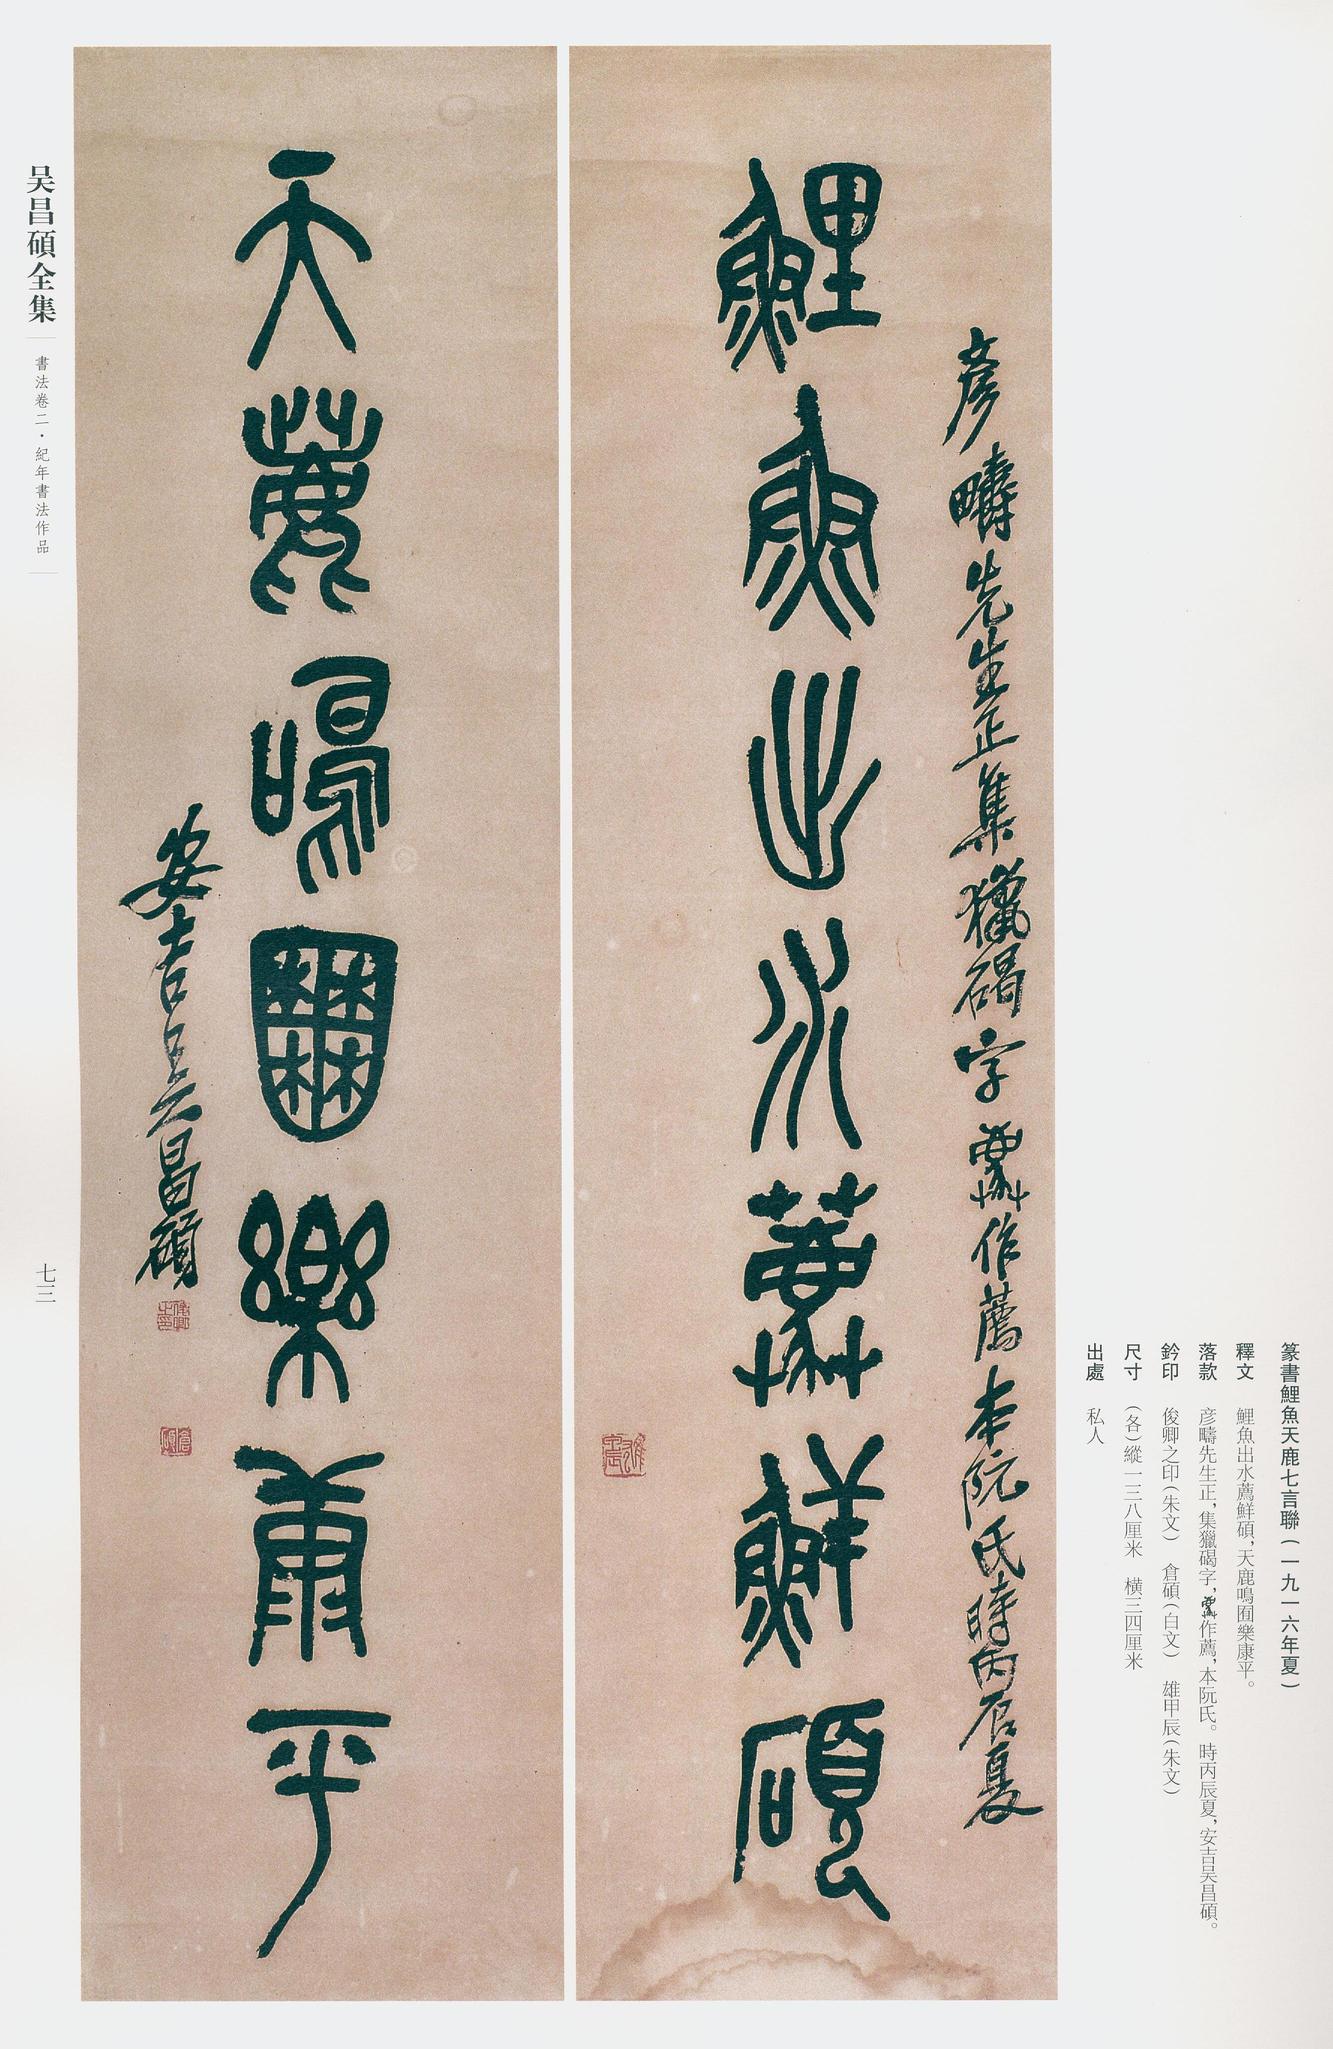 彥疇先生正集獵碣字
作薦本阮氏時丙辰夏
鯉魚出水薦鮮碩
天鹿鳴囿樂康平
安吉吳昌碩
篆書鯉魚天鹿七言聯(一九一六年夏)
釋文 鯉魚出水薦鮮碩,天鹿鳴囿樂康平。
落款 彥疇先生正,集獵碣字,作薦,本阮氏。時丙辰夏,安吉吳昌碩。
鈐印 俊卿之印(朱文) 倉碩(白文) 雄甲辰(朱文)
尺寸 (各)縱一三八厘米 橫三四厘米
出處 私人
吴昌碩全集
書法卷二·紀年書法作品
七三